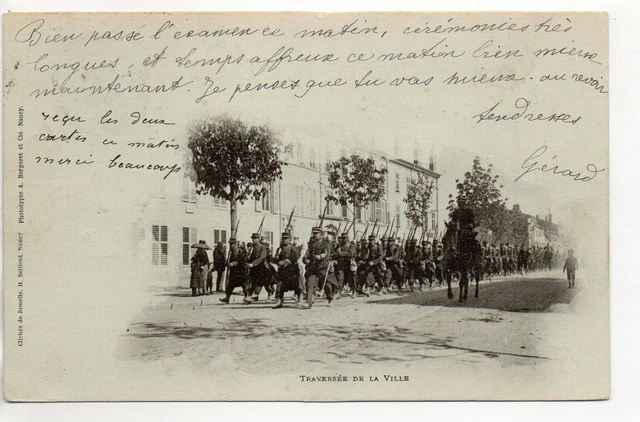 Bien passé l'examen ce matin, cérémonies très
longues, et temps affreux ce matin bien mieux
maintenant. Je penses que tu vas mieux. au revoir
tendresses
Gérard
reçu les deux
cartes ce matin
merci beaucoup
Clichés de Jumelle. H. Bellieni, Nancy Phototypie A. Bergeret et Cie Nancy.
TRAVERSÉE DE LA VILLE